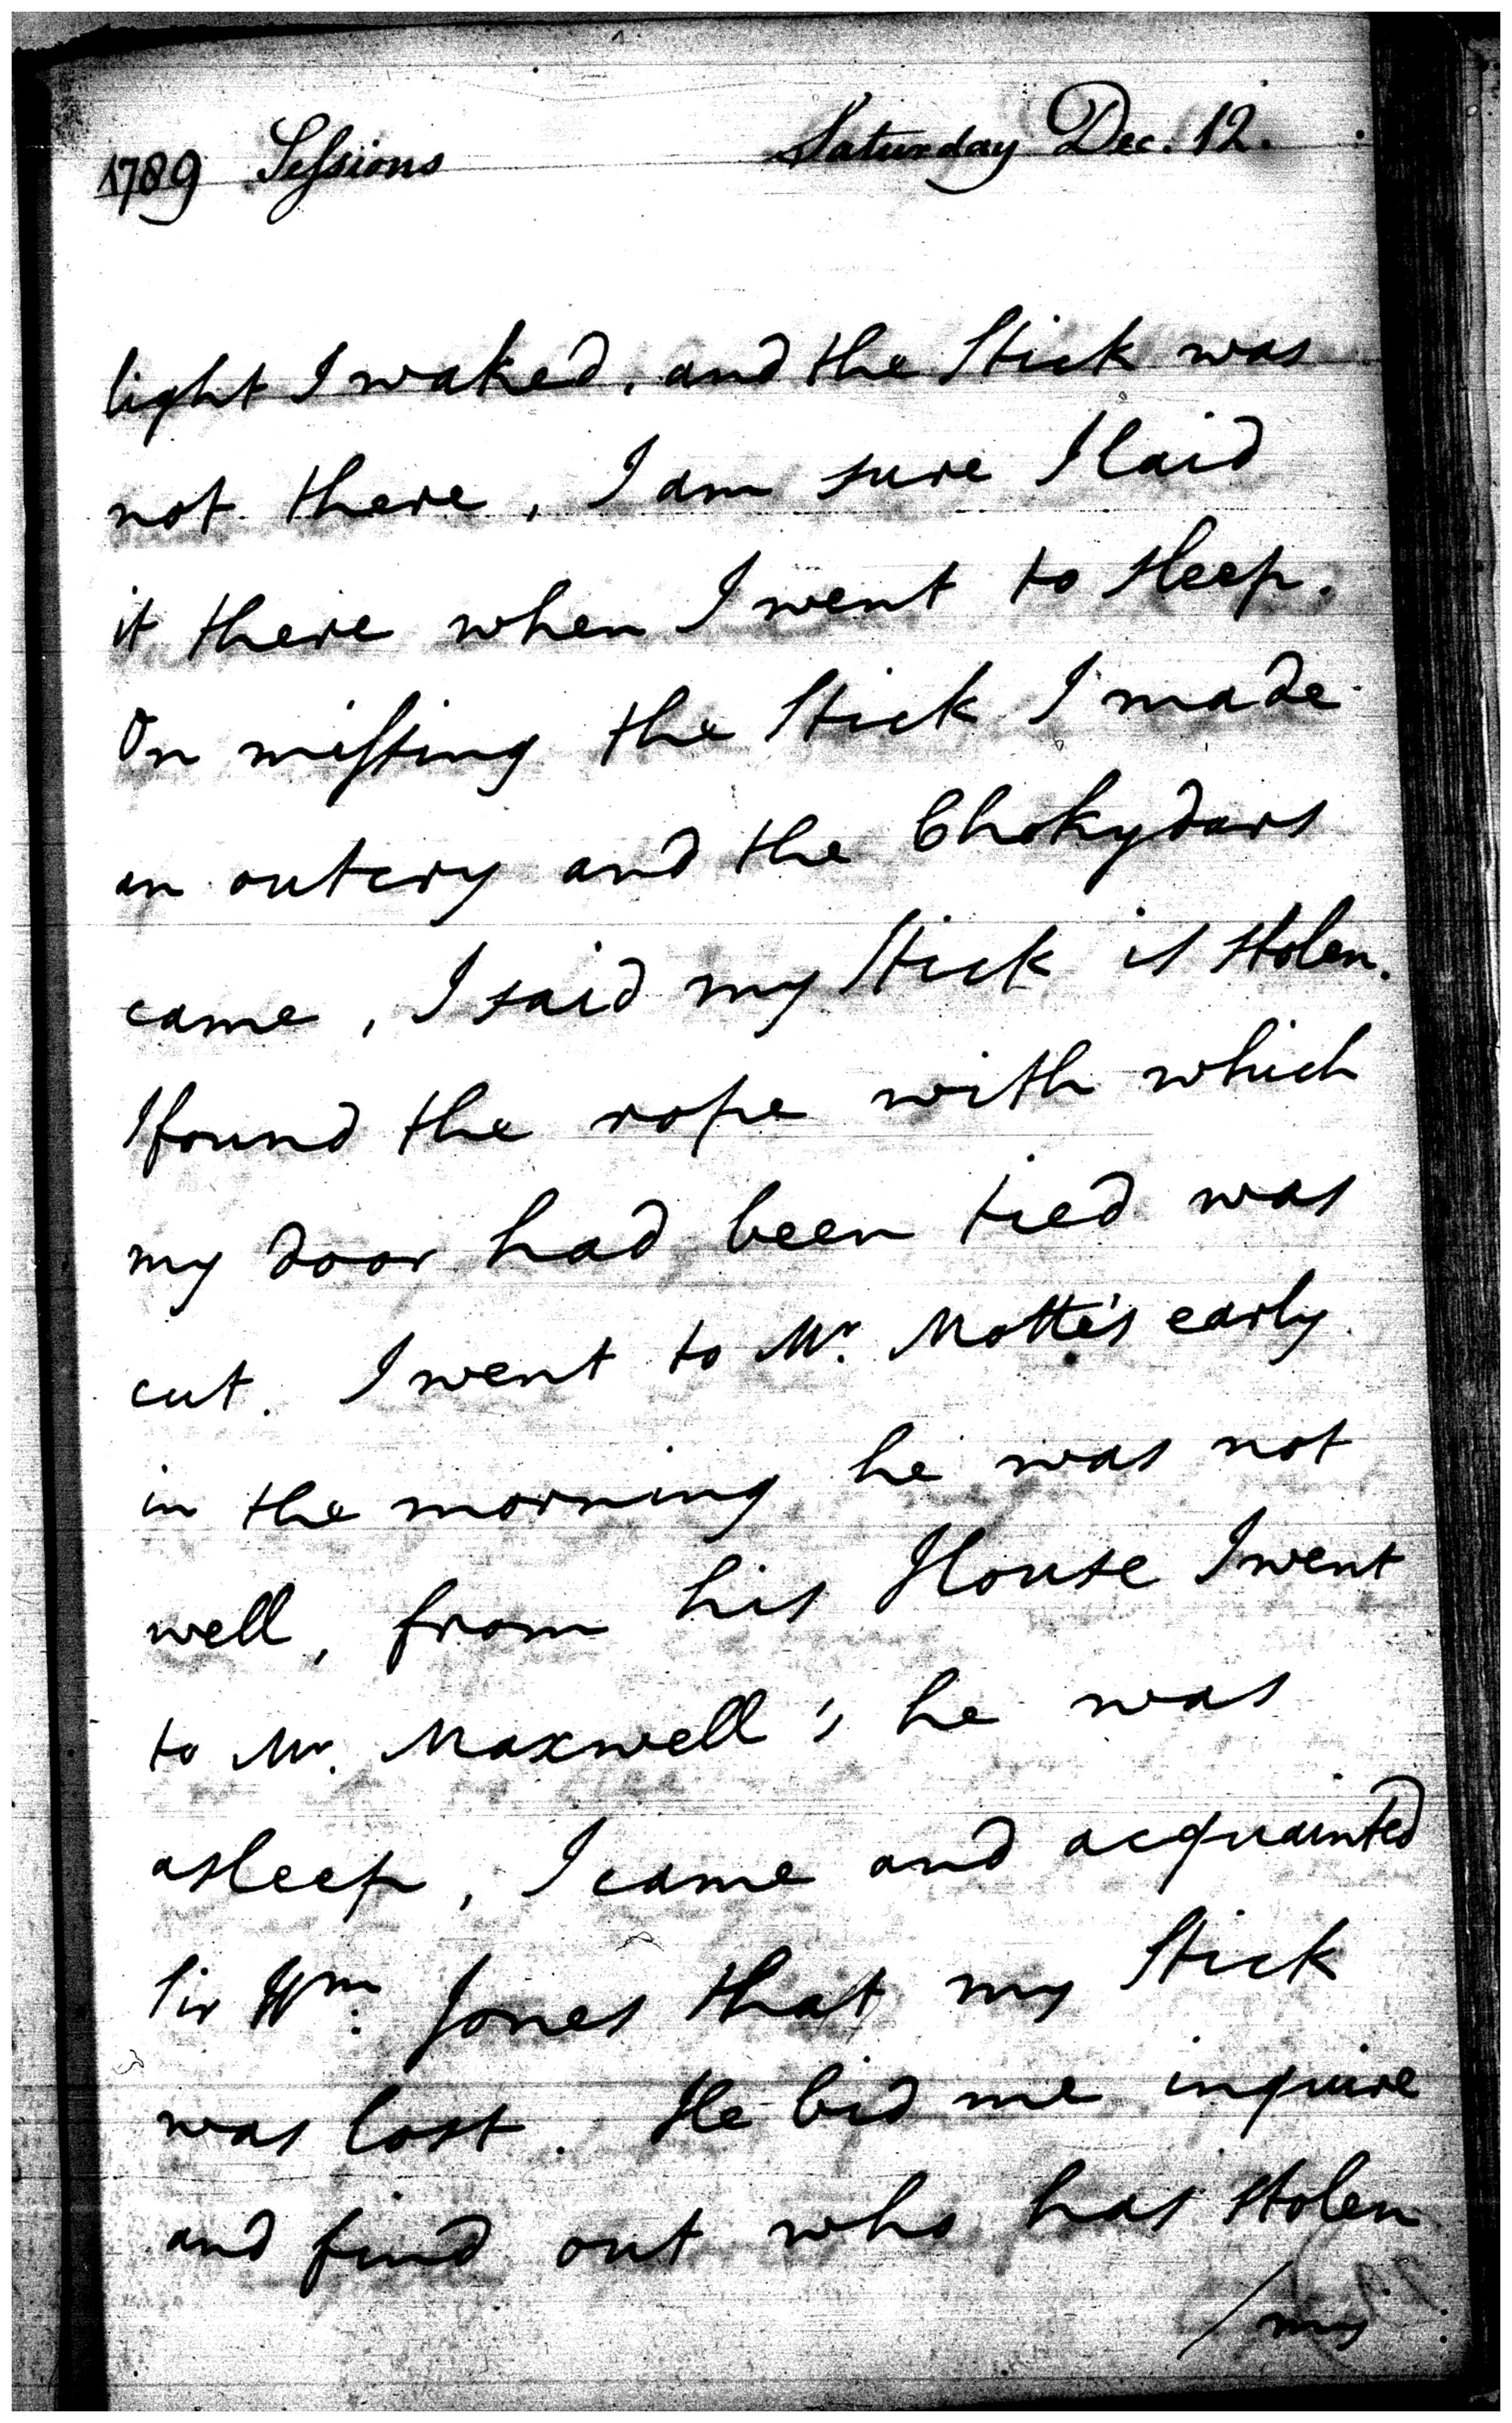 1789 Seſsions Saturday Dec. 12.
light I waked, and the Stick was
not there, I am sure I laid
it there when I went to sleep.
On miſsing the Stick I made
an outcry and the Chokydars
came, I said my Stick is stolen.
I found the rope with which
my door had been tied was
cut. I went to Mr. Motte's early
in the morning he was not
well, from his House I went
to Mr. Maxwell's he was
asleep, I came and acquainted
Sir Wm. Jones that my Stick
was lost. He bid me inquire
and find out who has stolen
/my